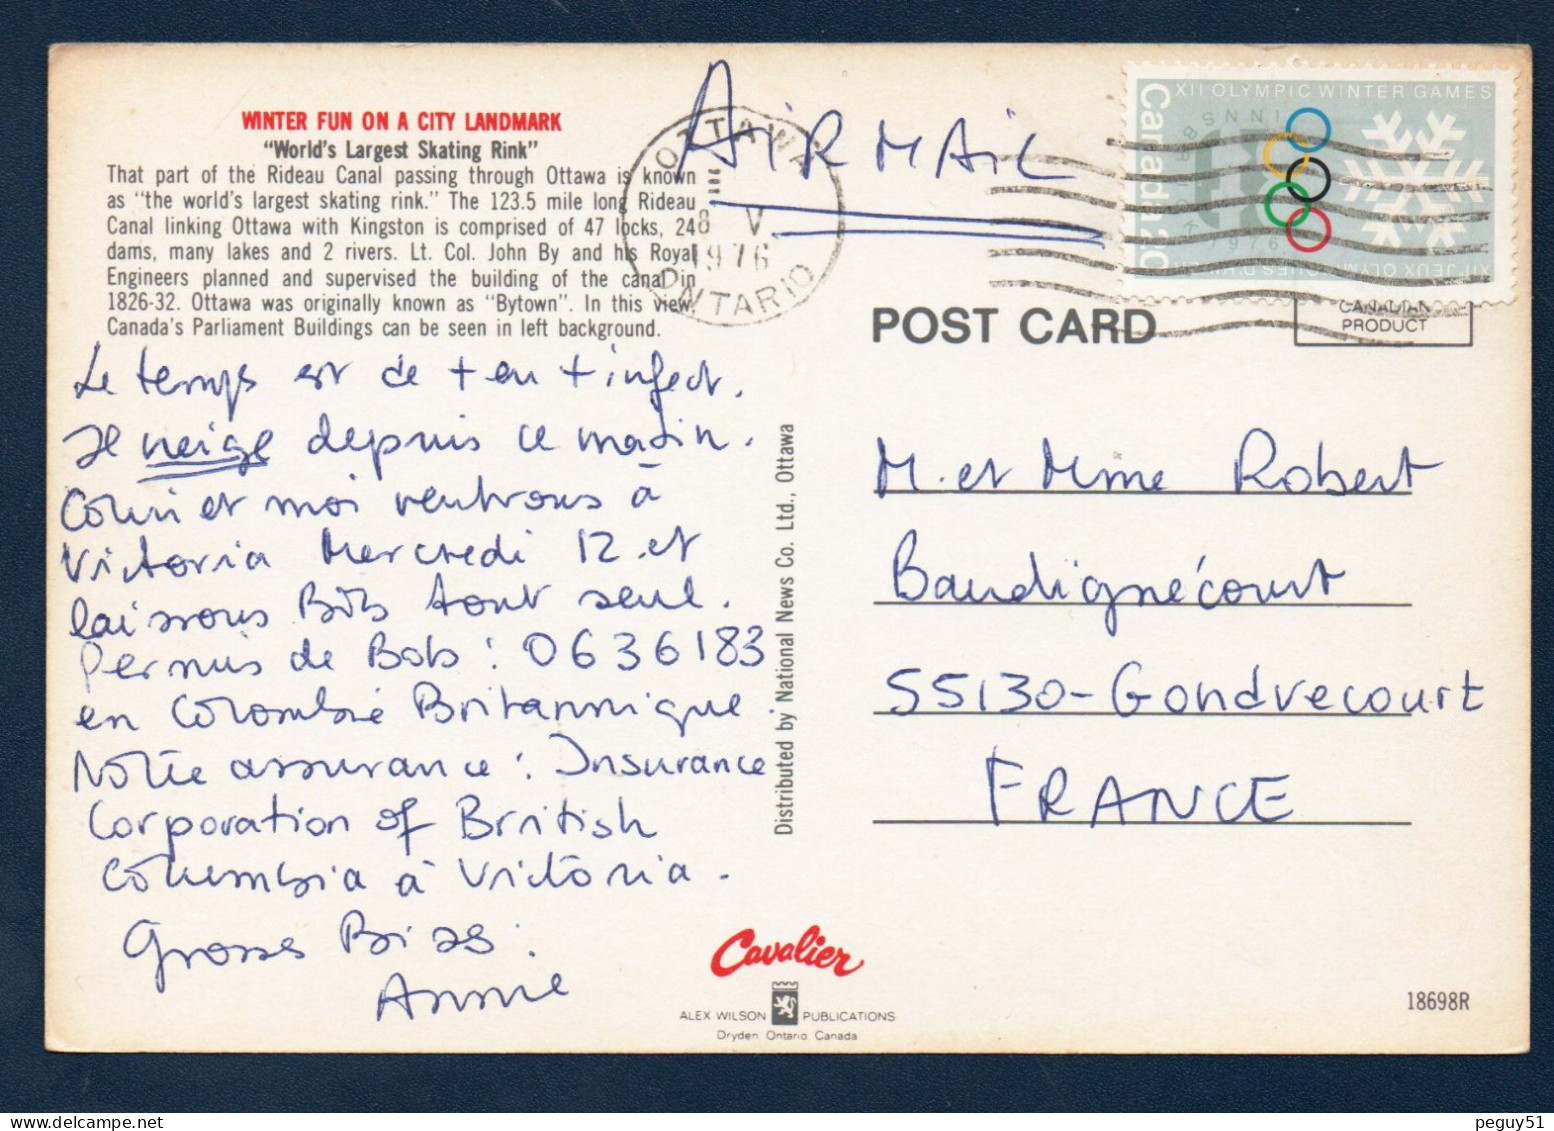 WINTER FUN ON A CITY LANDMARK
"World's Largest Skating Rink"
That part of the Rideau Canal passing through Ottawa is known
as "the world's largest skating rink." The 123.5 mile long Rideau
Canal linking Ottawa with Kingston is comprised of 47 locks, 24
dams, many lakes and 2 rivers. Lt. Col. John By and his Royal
Engineers planned and supervised the building of the canal in
1826-32. Ottawa was originally known as "Bytown". In this view
Canada's Parliament Buildings can be seen in left background.
Le temps est de + en + infect.
Il neige depuis ce matin.
Colin et moi rentrons à
Victoria Mercredi 12 et
laissons Bob tout seul.
Permis de Bob : 0636183
en Colombie Britannique.
Notre assurance : Insurance
Corporation of British
Columbia à Victoria.
Grosses Bises.
Annie
AIRMAIL
OTTAWA
8 V
1976
ONTARIO
XII OLYMPIC WINTER GAMES
Canada 20
INNSBRUCK 1976
XIIes JEUX OLYMPIQUES D'HIVER
CANADIAN
PRODUCT
POST CARD
M. et Mme Robert
Baudignécourt
55130 - Gondrecourt
FRANCE
Distributed by National News Co. Ltd., Ottawa
Cavalier
ALEX WILSON PUBLICATIONS
Dryden Ontario Canada
18698R
peguy51